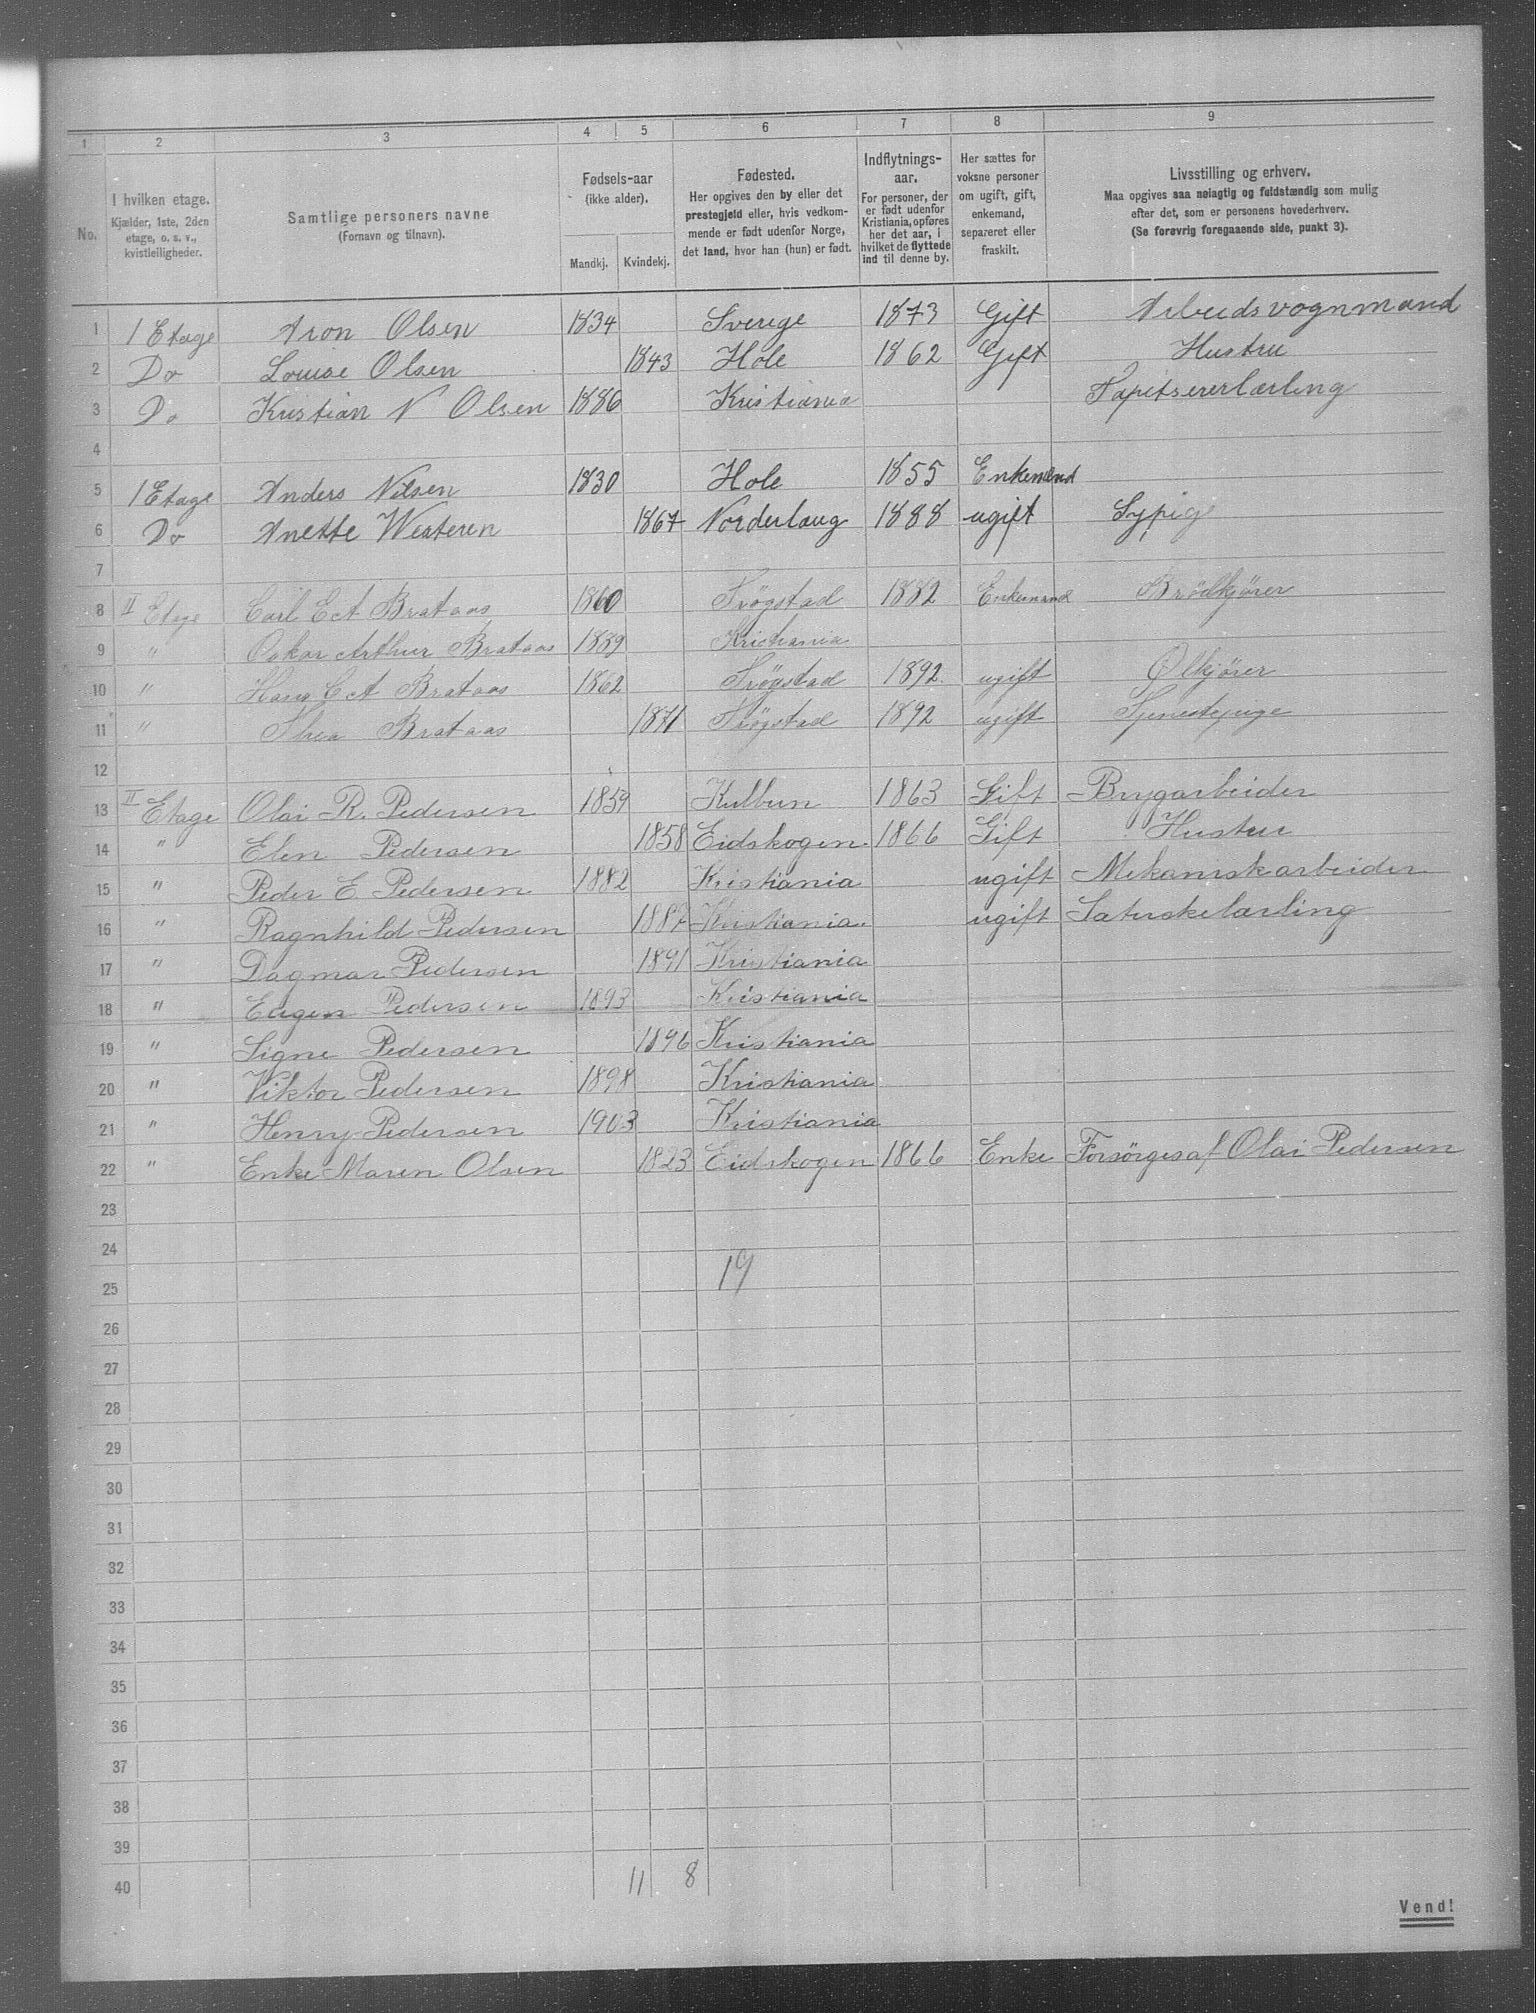 1 2 3 4 5 6 7 8 9
No. I hvilken etage. Kjælder, 1ste, 2den etage, o. s. v., kvistleiligheder. Samtlige personers navne (Fornavn og tilnavn). Fødsels-aar (ikke alder). Mandkj. Kvindekj. Fødested. Her opgives den by eller det prestegjeld eller, hvis vedkommende er født udenfor Norge, det land, hvor han (hun) er født. Indflytnings-aar. For personer, der er født udenfor Kristiania, opføres her det aar, i hvilket de flyttede ind til denne by. Her sættes for voksne personer om ugift, gift, enkemand, separeret eller fraskilt. Livsstilling og erhverv. Maa opgives saa nøiagtig og fuldstændig som mulig efter det, som er personens hovederhverv. (Se forøvrig foregaaende side, punkt 3).
1 1 Etage Aron Olsen 1834 Sverige 1873 Gift Arbeidsvognmand
2 Do Louise Olsen 1843 Hole 1862 Gift Hustru
3 Do Kristian N Olsen 1886 Kristiania Tapitsererlærling
4
5 1 Etage Anders Nilsen 1830 Hole 1855 Enkemand
6 Do Anette Westeren 1867 Norderhaug 1888 ugift Sypige
7
8 II Etage Carl E A Brataas 1860 Trøgstad 1882 Enkemand Brødkjører
9 " Oskar Arthur Brataas 1889 Kristiania
10 " Hans C A Brataas 1862 Trøgstad 1892. ugift Ølkjører
11 " Thea Brataas 1871 Trøgstad 1892 ugift Tjenestepige
12
13 II Etage Olai R. Pedersen 1859 1863 Gift Brygarbeider
14 " Elen Pedersen 1858 Eidskogen. 1866 Gift Hustru
15 " Peder E. Pedersen 1882 Kristiania ugift Mekaniskarbeider
16 " Ragnhild Pedersen 1887 Kristiania. ugift
17 " Dagmar Pedersen 1891 Kristiania
18 " Eugen Pedersen 1893 Kristiania
19 " Signe Pedersen 1896 Kristiania
20 " Viktor Pedersen 1898 Kristiania
21 " Henry Pedersen 1903 Kristiania
22 " Enke Maren Olsen 1823 Eidskogen 1866 Enke Forsørges af Olai Pedersen
23
24
19
25
26
27
28
29
30
31
32
33
34
35
36
37
38
39
40 11 8
Vend!